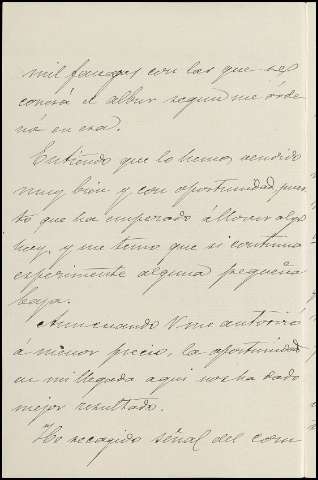 mil fanegas con las que se
cerrará el albur segun me orde
nó en esa.
Entiendo que lo hemos vendido
muy bien y con oportunidad pues
to que ha empezado á llover algo
hoy, y me temo que si continua
experimente alguna pequeña
baja.
Aun cuando V me autorizó
á menor precio, la oportunidad
de mi llegada aqui nos ha dado
mejor resultado.
He recogido señal del com